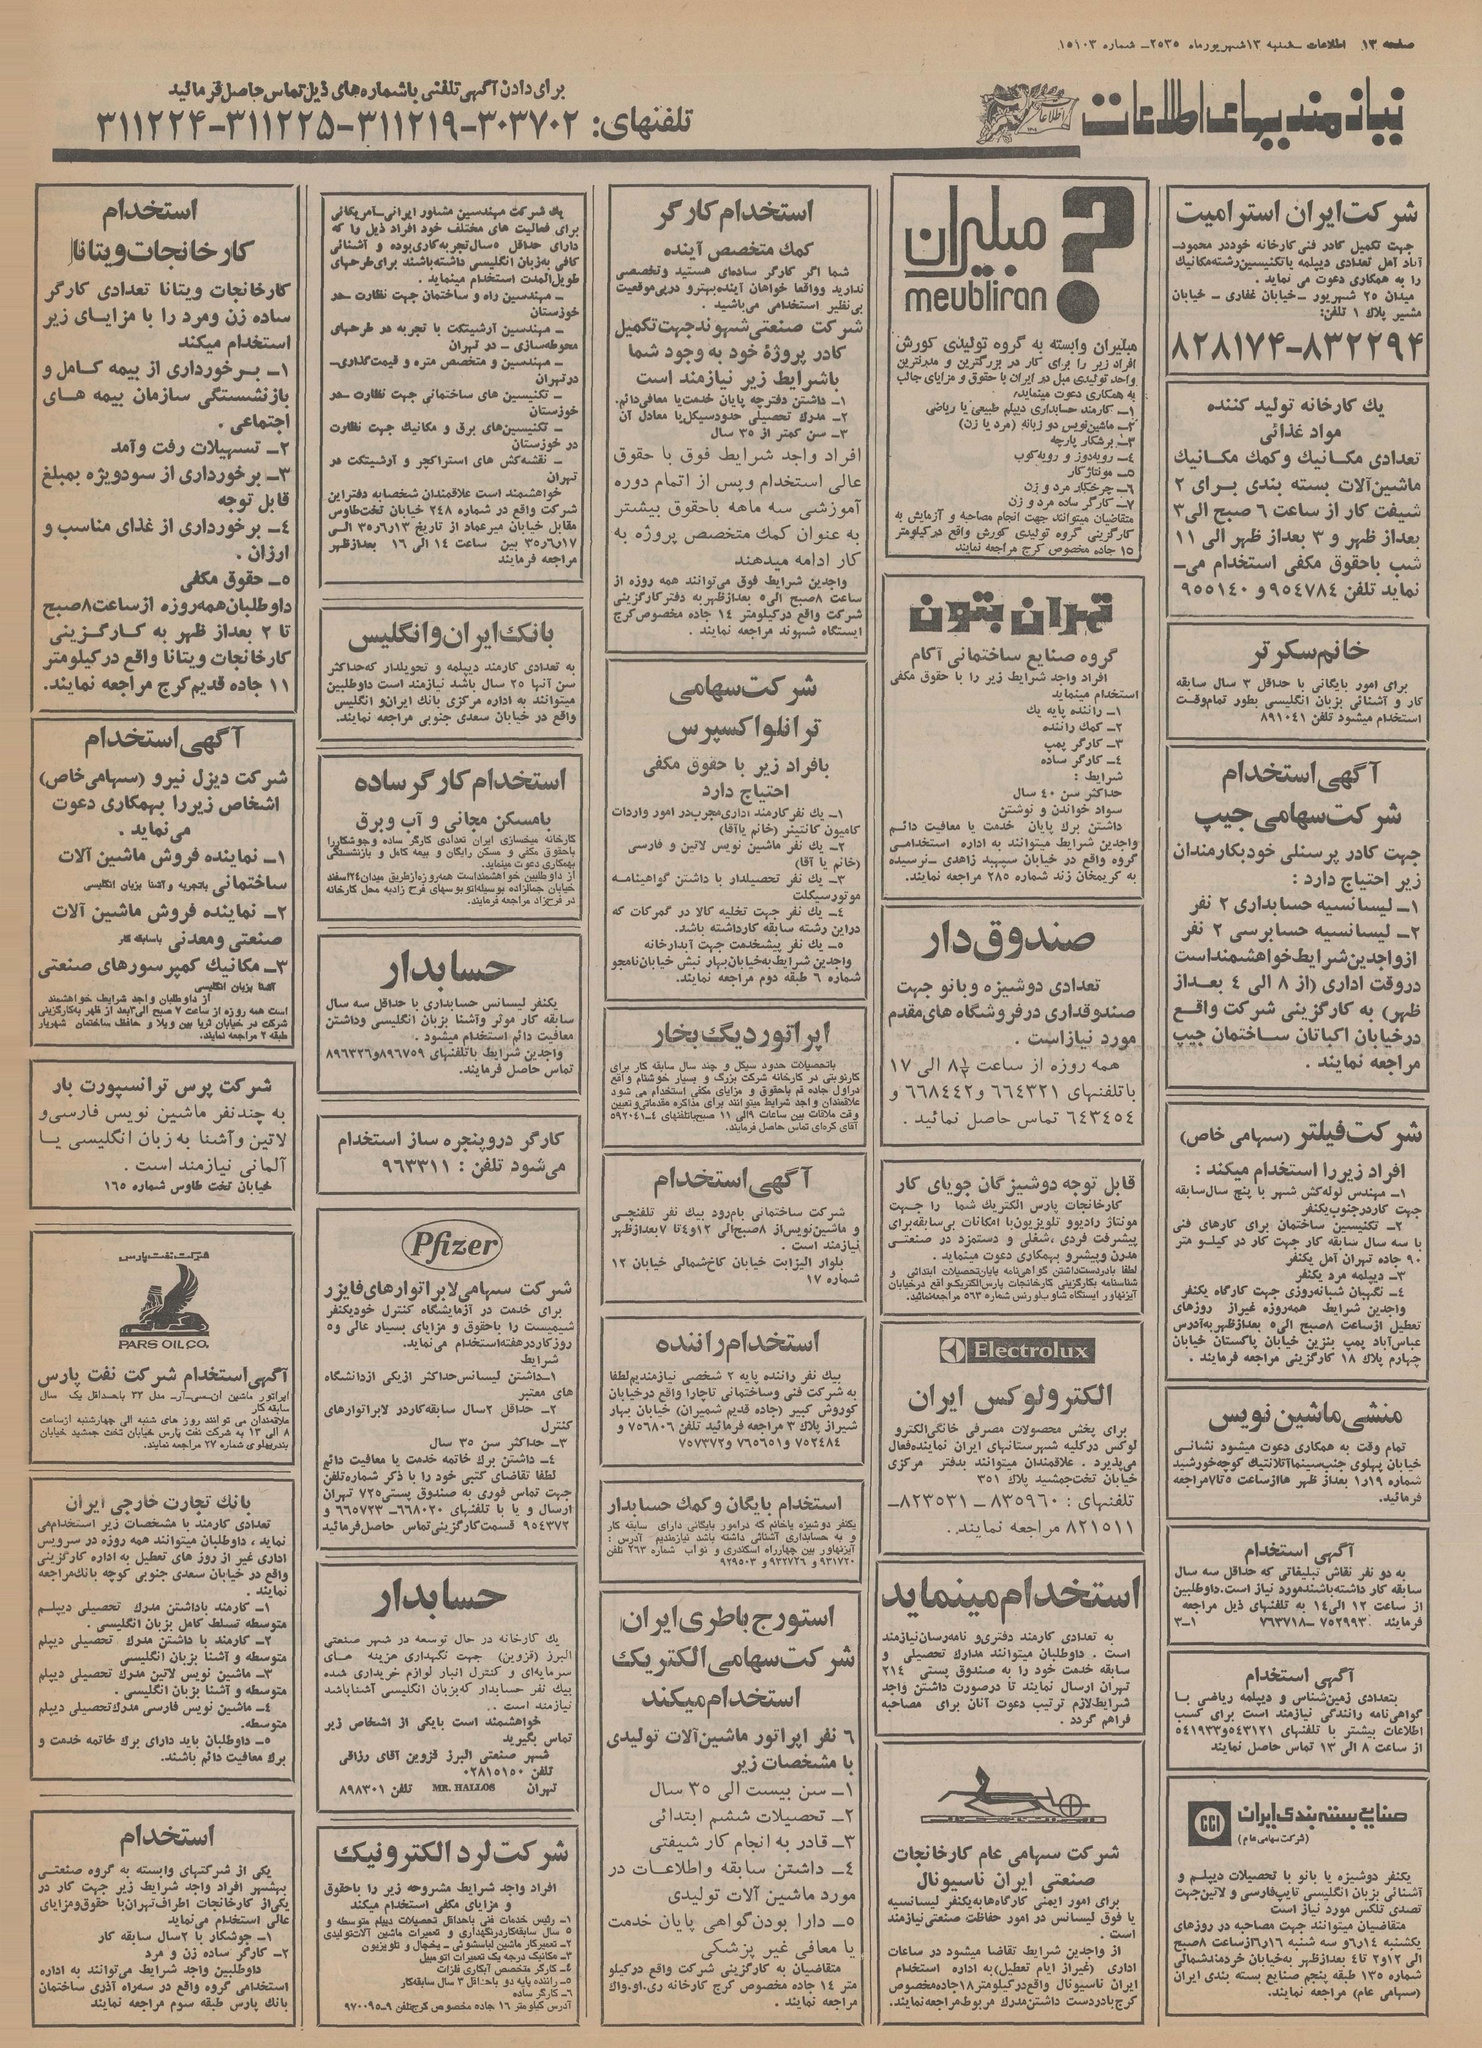 صفحه ۱۳ اطلاعات ـ شنبه ۱۳ شهریور ماه ۲۵۳۵ ـ شماره ۱۵۱۰۳
نیازمندیهای اطلاعات
برای دادن آگهی تلفنی با شماره های ذیل تماس حاصل فرمائید
تلفنهای: ۳۰۳۷۰۲-۳۱۱۲۱۹-۳۱۱۲۲۵-۳۱۱۲۲۴
شرکت ایران استرامیت
جهت تکمیل کادر فنی کارخانه خود در محمود ـ
آباد آمل تعدادی دیپلمه یا تکنیسین رشته مکانیک
را به همکاری دعوت می نماید .
میدان ۲۵ شهریور ـ خیابان غفاری ـ خیابان
مشیر پلاک ۱ تلفن:
۸۲۸۱۷۴-۸۳۲۲۹۴
یک کارخانه تولید کننده
مواد غذائی
تعدادی مکانیک و کمک مکانیک
ماشین آلات بسته بندی برای ۲
شیفت کار از ساعت ۶ صبح الی ۳
بعداز ظهر و ۳ بعداز ظهر الی ۱۱
شب با حقوق مکفی استخدام می ـ
نماید تلفن ۹۵۴۷۸۴ و ۹۵۵۱۴۰
خانم سکرتر
برای امور بایگانی با حداقل ۳ سال سابقه
کار و آشنائی بزبان انگلیسی بطور تمام وقت
استخدام میشود تلفن ۸۹۱۰۴۱
آگهی استخدام
شرکت سهامی جیپ
جهت کادر پرسنلی خود بکارمندان
زیر احتیاج دارد :
۱ـ لیسانسیه حسابداری ۲ نفر
۲ـ لیسانسیه حسابرسی ۲ نفر
از واجدین شرایط خواهشمند است
در وقت اداری (از ۸ الی ۴ بعداز
ظهر) به کارگزینی شرکت واقع
در خیابان اکباتان ساختمان جیپ
مراجعه نمایند .
شرکت فیلتر (سهامی خاص)
افراد زیر را استخدام میکند :
۱ـ مهندس لوله کش شهر با پنج سال سابقه
جهت کار در جنوب یکنفر
۲ـ تکنیسین ساختمان برای کارهای فنی
با سه سال سابقه کار جهت کار در کیلو متر
۹۰ جاده تهران آمل یکنفر
۳ـ دیپلمه مرد یکنفر
۴ـ نگهبان شبانه روزی جهت کارگاه یکنفر
واجدین شرایط همه روزه غیر از روزهای
تعطیل از ساعت ۸ صبح الی ۵ بعداز ظهر به آدرس
عباس آباد پمپ بنزین خیابان پاکستان خیابان
چهارم پلاک ۱۸ کارگزینی مراجعه فرمایند .
منشی ماشین نویس
تمام وقت به همکاری دعوت میشود نشانی
خیابان پهلوی جنب سینما آتلانتیک کوچه خورشید
شماره ۱۹ر۱ بعداز ظهر ها از ساعت ۵ تا ۷ مراجعه
فرمائید.
آگهی استخدام
به دو نفر نقاش تبلیغاتی که حداقل سه سال
سابقه کار داشته باشند مورد نیاز است. داوطلبین
از ساعت ۱۲ الی ۱۴ به تلفنهای ذیل مراجعه
فرمایند ۷۵۲۹۹۳ ـ ۷۶۳۷۱۸ ۱ـ۳
آگهی استخدام
بتعدادی زمین شناس و دیپلمه ریاضی با
گواهی نامه رانندگی نیازمند است برای کسب
اطلاعات بیشتر با تلفنهای ۵۴۳۱۲۱ و ۵۴۱۹۳۳
از ساعت ۸ الی ۱۳ تماس حاصل نمایند
صنایع بسته بندی ایران
(شرکت سهامی عام)
CCI
یکنفر دوشیزه یا بانو با تحصیلات دیپلم و
آشنائی بزبان انگلیسی تایپ فارسی و لاتین جهت
تصدی تلکس مورد نیاز است
متقاضیان میتوانند جهت مصاحبه در روزهای
یکشنبه ۶ر۱۴ و سه شنبه ۶ر۱۶ از ساعت ۸ صبح
الی ۱۲ و ۲ تا ۴ بعداز ظهر به خیابان خردمند شمالی
شماره ۱۳۵ طبقه پنجم صنایع بسته بندی ایران
(سهامی عام) مراجعه نمایند.
مبلیران
meubliran
مبلیران وابسته به گروه تولیدی کورش
افراد زیر را برای کار در بزرگترین و مدرنترین
واحد تولیدی مبل در ایران با حقوق و مزایای جالب
به همکاری دعوت مینماید.
۱ـ کارمند حسابداری دیپلم طبیعی یا ریاضی
۲ـ ماشین نویس دو زبانه (مرد یا زن)
۳ـ برشکار پارچه
۴ـ رویه دوز و رویه کوب
۵ـ مونتاژ کار
۶ـ چرخکار مرد و زن
۷ـ کارگر ساده مرد و زن
متقاضیان میتوانند جهت انجام مصاحبه و آزمایش به
کارگزینی گروه تولیدی کورش واقع در کیلومتر
۱۵ جاده مخصوص کرج مراجعه نمایند
تهران بتون
گروه صنایع ساختمانی آکام
افراد واجد شرایط زیر را با حقوق مکفی
استخدام مینماید
۱ـ راننده پایه یک
۲ـ کمک راننده
۳ـ کارگر پمپ
۴ـ کارگر ساده
شرایط :
حداکثر سن ۴۰ سال
سواد خواندن و نوشتن
داشتن برگ پایان خدمت یا معافیت دائم
واجدین شرایط میتوانند به اداره استخدامی
گروه واقع در خیابان سپهبد زاهدی ـ نرسیده
به کریمخان زند شماره ۲۸۵ مراجعه نمائید.
صندوق دار
تعدادی دوشیزه و بانو جهت
صندوقداری در فروشگاه های مقدم
مورد نیاز است .
همه روزه از ساعت ۸½ الی ۱۷
با تلفنهای ۶۶۴۳۲۱ و ۶۶۸۴۴۲ و
۶۴۳۴۵۴ تماس حاصل نمائید .
قابل توجه دوشیزگان جویای کار
کارخانجات پارس الکتریک شما را جهت
مونتاژ رادیو و تلویزیون با امکانات بی سابقه برای
پیشرفت فردی ، شغلی و دستمزد در صنعتی
مدرن و پیشرو بهمکاری دعوت مینماید .
لطفا با در دست داشتن گواهی نامه پایان تحصیلات ابتدائی و
شناسنامه بکارگزینی کارخانجات پارس الکتریک واقع در خیابان
آیزنهاور ایستگاه شاوب لورنس شماره ۵۶۳ مراجعه نمائید.
Electrolux
الکترولوکس ایران
برای پخش محصولات مصرفی خانگی الکترو
لوکس در کلیه شهرستانهای ایران نماینده فعال
می پذیرد . علاقمندان میتوانند بدفتر مرکزی
خیابان تخت جمشید پلاک ۳۵۱
تلفنهای : ۸۳۵۹۶۰ ـ ۸۲۳۵۳۱ ـ
۸۲۱۵۱۱ مراجعه نمایند.
استخدام مینماید
به تعدادی کارمند دفتری و نامه رسان نیازمند
است . داوطلبان میتوانند مدارک تحصیلی و
سابقه خدمت خود را به صندوق پستی ۲۱۴
تهران ارسال نمایند تا در صورت داشتن واجد
شرایط لازم ترتیب دعوت آنان برای مصاحبه
فراهم گردد .
شرکت سهامی عام کارخانجات
صنعتی ایران ناسیونال
برای امور ایمنی کارگاهها به یکنفر لیسانسیه
یا فوق لیسانس در امور حفاظت صنعتی نیازمند
است .
از واجدین شرایط تقاضا میشود در ساعات
اداری (غیر از ایام تعطیل) به اداره استخدام
ایران ناسیونال واقع در کیلومتر ۱۸ جاده مخصوص
کرج با در دست داشتن مدرک مربوط مراجعه نمایند.
استخدام کارگر
کمک متخصص آینده
شما اگر کارگر ساده ای هستید و تخصصی
ندارید و واقعا خواهان آینده بهتر و در پی موقعیت
بی نظیر استخدامی می باشید .
شرکت صنعتی شهوند جهت تکمیل
کادر پروژهٔ خود به وجود شما
با شرایط زیر نیازمند است
۱ـ داشتن دفترچه پایان خدمت یا معافی دائم.
۲ـ مدرک تحصیلی حدود سیکل یا معادل آن
۳ـ سن کمتر از ۳۵ سال
افراد واجد شرایط فوق با حقوق
عالی استخدام و پس از اتمام دوره
آموزشی سه ماهه با حقوق بیشتر
به عنوان کمک متخصص پروژه به
کار ادامه میدهند
واجدین شرایط فوق می توانند همه روزه از
ساعت ۸ صبح الی ۵ بعداز ظهر به دفتر کارگزینی
شرکت واقع در کیلومتر ۱۴ جاده مخصوص کرج
ایستگاه شهوند مراجعه نمایند .
شرکت سهامی
ترانلو اکسپرس
بافراد زیر با حقوق مکفی
احتیاج دارد
۱ـ یک نفر کارمند اداری مجرب در امور واردات
کامیون کانتینر (خانم یا آقا)
۲ـ یک نفر ماشین نویس لاتین و فارسی
(خانم یا آقا)
۳ـ یک نفر تحصیلدار با داشتن گواهینامه
موتورسیکلت
۴ـ یک نفر جهت تخلیه کالا در گمرکات که
در این رشته سابقه کار داشته باشد.
۵ـ یک نفر پیشخدمت جهت آبدارخانه
واجدین شرایط به خیابان بهار نبش خیابان نامجو
شماره ۶ طبقه دوم مراجعه نمایند.
اپراتور دیگ بخار
با تحصیلات حدود سیکل و چند سال سابقه کار برای
کار نوبتی در کارخانه شرکت بزرگ و بسیار خوشنام واقع
در اول جاده قم با حقوق و مزایای مکفی استخدام می شود
علاقمندان واجد شرایط میتوانند برای مذاکره مقدماتی و تعیین
وقت ملاقات بین ساعات ۹ الی ۱۱ صبح با تلفنهای ۴ـ۵۹۲۰۴۱
آقای کره ای تماس حاصل فرمایند.
آگهی استخدام
شرکت ساختمانی بام رود بیک نفر تلفنچی
و ماشین نویس از ۸ صبح الی ۱۲ و ۴ تا ۷ بعداز ظهر
نیازمند است .
بلوار الیزابت خیابان کاخ شمالی خیابان ۱۲
شماره ۱۷
استخدام راننده
بیک نفر راننده پایه ۲ شخصی نیازمندیم لطفا
به شرکت فنی و ساختمانی تاچارا واقع در خیابان
کوروش کبیر (جاده قدیم شمیران) خیابان بهار
شیراز پلاک ۳ مراجعه فرمائید تلفن ۷۵۶۸۰۶ و
۷۵۲۴۸۴ و ۷۶۵۶۵۱ و ۷۵۷۳۷۲
استخدام بایگان و کمک حسابدار
یکنفر دوشیزه یا خانم که در امور بایگانی دارای سابقه کار
و به حسابداری آشنائی داشته باشد نیازمندیم آدرس :
آیزنهاور بین چهارراه اسکندری و نواب شماره ۲۶۳ تلفن
۹۳۱۷۲۰ و ۹۳۲۷۲۶ و ۹۲۹۵۰۳
استورج باطری ایران
شرکت سهامی الکتریک
استخدام میکند
۶ نفر اپراتور ماشین آلات تولیدی
با مشخصات زیر
۱ـ سن بیست الی ۳۵ سال
۲ـ تحصیلات ششم ابتدائی
۳ـ قادر به انجام کار شیفتی
۴ـ داشتن سابقه و اطلاعات در
مورد ماشین آلات تولیدی
۵ـ دارا بودن گواهی پایان خدمت
یا معافی غیر پزشکی
متقاضیان به کارگزینی شرکت واقع در کیلو
متر ۱۴ جاده مخصوص کرج کارخانه ری.او.واک
مراجعه نمایند .
یک شرکت مهندسین مشاور ایرانی ـ آمریکائی
برای فعالیت های مختلف خود افراد ذیل را که
دارای حداقل ۵ سال تجربه کاری بوده و آشنائی
کافی به زبان انگلیسی داشته باشند برای طرحهای
طویل المدت استخدام مینماید.
ـ مهندسین راه و ساختمان جهت نظارت ـ در
خوزستان
ـ مهندسین آرشیتکت با تجربه در طرحهای
محوطه سازی ـ در تهران
ـ مهندسین و متخصص متره و قیمت گذاری ـ
در تهران
ـ تکنیسین های ساختمانی جهت نظارت ـ در
خوزستان
ـ تکنیسین های برق و مکانیک جهت نظارت
در خوزستان
ـ نقشه کش های استراکچر و آرشیتکت در
تهران
خواهشمند است علاقمندان شخصا به دفتر این
شرکت واقع در شماره ۲۴۸ خیابان تخت طاوس
مقابل خیابان میرعماد از تاریخ ۱۳ر۶ر۳۵ الی
۱۷ر۶ر۳۵ بین ساعت ۱۴ الی ۱۶ بعداز ظهر
مراجعه فرمایند
بانک ایران و انگلیس
به تعدادی کارمند دیپلمه و تحویلدار که حداکثر
سن آنها ۲۵ سال باشد نیازمند است داوطلبین
میتوانند به اداره مرکزی بانک ایران و انگلیس
واقع در خیابان سعدی جنوبی مراجعه نمایند.
استخدام کارگر ساده
با مسکن مجانی و آب و برق
کارخانه میخسازی ایران تعدادی کارگر ساده و جوشکار را
با حقوق مکفی و مسکن رایگان و بیمه کامل و بازنشستگی
بهمکاری دعوت مینماید.
از داوطلبین خواهشمند است همه روزه از طریق میدان ۲۴ اسفند
خیابان جمالزاده بوسیله اتوبوسهای فرح زاد به محل کارخانه
در فرحزاد مراجعه فرمایند.
حسابدار
یکنفر لیسانس حسابداری با حداقل سه سال
سابقه کار موثر و آشنا بزبان انگلیسی و داشتن
معافیت دائم استخدام میشود .
واجدین شرایط با تلفنهای ۸۹۶۷۵۹ و ۸۹۶۳۲۶
تماس حاصل فرمایند.
کارگر در و پنجره ساز استخدام
می شود تلفن : ۹۶۳۳۱۱
Pfizer
شرکت سهامی لابراتوارهای فایزر
برای خدمت در آزمایشگاه کنترل خود یکنفر
شیمیست را با حقوق و مزایای بسیار عالی و ۵
روز کار در هفته استخدام می نماید.
شرایط
۱ـ داشتن لیسانس حداکثر از یکی از دانشگاه
های معتبر
۲ـ حداقل ۲ سال سابقه کار در لابراتوارهای
کنترل
۳ـ حداکثر سن ۳۵ سال
۴ـ داشتن برگ خاتمه خدمت یا معافیت دائم
لطفا تقاضای کتبی خود را با ذکر شماره تلفن
جهت تماس فوری به صندوق پستی ۷۲۵ تهران
ارسال و یا با تلفنهای ۶۶۸۰۲۰ ـ ۶۶۵۷۲۳ و
۹۵۴۳۷۲ قسمت کارگزینی تماس حاصل فرمائید
حسابدار
یک کارخانه در حال توسعه در شهر صنعتی
البرز (قزوین) جهت نگهداری هزینه های
سرمایه ای و کنترل انبار لوازم خریداری شده
بیک نفر حسابدار که بزبان انگلیسی آشنا باشد
نیازمند است .
خواهشمند است بایکی از اشخاص زیر
تماس بگیرید
شهر صنعتی البرز قزوین آقای رزاقی
تلفن ۰۲۸۱۵۱۵۰
تهران MR. HALLOS تلفن ۸۹۸۳۰۱
شرکت لرد الکترونیک
افراد واجد شرایط مشروحه زیر را با حقوق
و مزایای مکفی استخدام میکند
۱ـ رئیس خدمات فنی با حداقل تحصیلات دیپلم متوسطه و
۵ سال سابقه کار در نگهداری و تعمیرات ماشین آلات تولیدی
۲ـ تعمیر کار ماشین لباسشوئی ـ یخچال و تلویزیون
۳ـ مکانیک درجه یک تعمیرات اتومبیل
۴ـ کارگر متخصص آبکاری فلزات
۵ـ راننده پایه دو با حداقل ۳ سال سابقه کار
۶ـ کارگر ساده
آدرس کیلومتر ۱۶ جاده مخصوص کرج تلفن ۹ـ۹۷۰۰۹۵
استخدام
کارخانجات ویتانا
کارخانجات ویتانا تعدادی کارگر
ساده زن و مرد را با مزایای زیر
استخدام میکند
۱ـ برخورداری از بیمه کامل و
بازنشستگی سازمان بیمه های
اجتماعی .
۲ـ تسهیلات رفت و آمد
۳ـ برخورداری از سود ویژه بمبلغ
قابل توجه
۴ـ برخورداری از غذای مناسب و
ارزان .
۵ـ حقوق مکفی
داوطلبان همه روزه از ساعت ۸ صبح
تا ۲ بعداز ظهر به کارگزینی
کارخانجات ویتانا واقع در کیلومتر
۱۱ جاده قدیم کرج مراجعه نمایند.
آگهی استخدام
شرکت دیزل نیرو (سهامی خاص)
اشخاص زیر را بهمکاری دعوت
می نماید .
۱ـ نماینده فروش ماشین آلات
ساختمانی با تجربه و آشنا بزبان انگلیسی
۲ـ نماینده فروش ماشین آلات
صنعتی و معدنی با سابقه کار
۳ـ مکانیک کمپرسورهای صنعتی
آشنا بزبان انگلیسی
از داوطلبان واجد شرایط خواهشمند
است همه روزه از ساعت ۷ صبح الی ۳ بعد از ظهر به کارگزینی
شرکت در خیابان ثریا بین ویلا و حافظ ساختمان شهریار
طبقه ۲ مراجعه نمایند.
شرکت پرس ترانسپورت بار
به چند نفر ماشین نویس فارسی و
لاتین و آشنا به زبان انگلیسی یا
آلمانی نیازمند است .
خیابان تخت طاوس شماره ۱۶۵
شرکت نفت پارس
PARS OIL CO.
آگهی استخدام شرکت نفت پارس
اپراتور ماشین ان ـ سی ـ آر ـ مدل ۳۲ با حداقل یک سال
سابقه کار
علاقمندان می توانند روز های شنبه الی چهارشنبه از ساعت
۸ الی ۱۳ به شرکت نفت پارس خیابان تخت جمشید خیابان
بندر پهلوی شماره ۲۷ مراجعه نمایند.
بانک تجارت خارجی ایران
تعدادی کارمند با مشخصات زیر استخدام می
نماید ، داوطلبان میتوانند همه روزه در سرویس
اداری غیر از روز های تعطیل به اداره کارگزینی
واقع در خیابان سعدی جنوبی کوچه بانک مراجعه
نمایند .
۱ـ کارمند با داشتن مدرک تحصیلی دیپلم
متوسطه تسلط کامل بزبان انگلیسی .
۲ـ کارمند با داشتن مدرک تحصیلی دیپلم
متوسطه و آشنا بزبان انگلیسی
۳ـ ماشین نویس لاتین مدرک تحصیلی دیپلم
متوسطه و آشنا بزبان انگلیسی .
۴ـ ماشین نویس فارسی مدرک تحصیلی دیپلم
متوسطه.
۵ـ داوطلبان باید دارای برگ خاتمه خدمت و
برگ معافیت دائم باشند.
استخدام
یکی از شرکتهای وابسته به گروه صنعتی
بهشهر افراد واجد شرایط زیر جهت کار در
یکی از کارخانجات اطراف تهران با حقوق و مزایای
عالی استخدام می نماید
۱ـ جوشکار با ۲ سال سابقه کار
۲ـ کارگر ساده زن و مرد
داوطلبین واجد شرایط می توانند به اداره
استخدامی گروه واقع در سه راه آذری ساختمان
بانک پارس طبقه سوم مراجعه نمایند